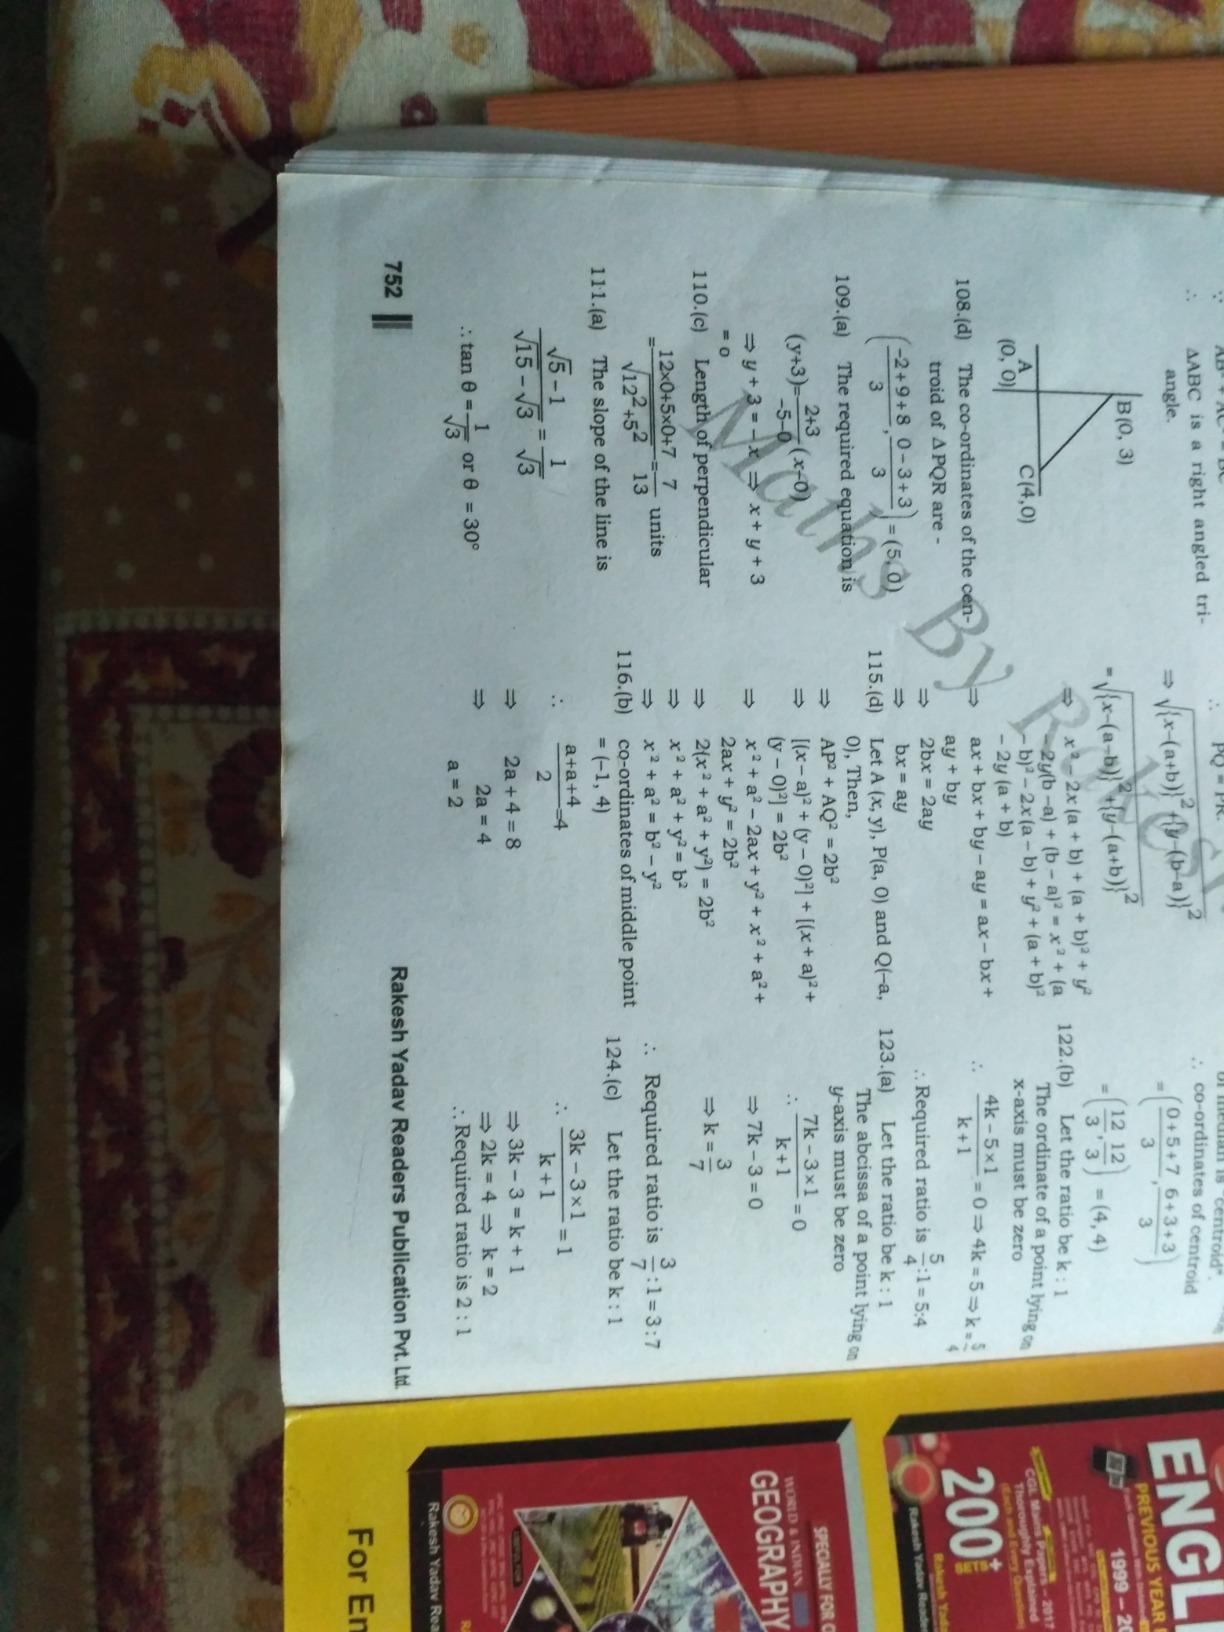 ∴ ΔABC is a right angled tri-
angle.
B(0, 3)
A
(0, 0)
C(4,0)
108.(d) The co-ordinates of the cen-
troid of Δ PQR are -
(-2+9+8/3, 0-3+3/3) = (5, 0)
109.(a) The required equation is
(y+3)= 2+3/-5-0 (x-0)
⇒ y + 3 = - x ⇒ x + y + 3
= 0
110.(c) Length of perpendicular
= 12×0+5×0+7/√12²+5² = 7/13 units
111.(a) The slope of the line is
√5 - 1/√15 - √3 = 1/√3
∴ tan θ = 1/√3 or θ = 30°
752
∴ PQ = PR.
⇒ √{x-(a+b)}²+{y-(b-a)}²
= √{x-(a-b)}²+{y-(a+b)}²
⇒ x² - 2x (a + b) + (a + b)² + y²
- 2y(b -a) + (b - a)² = x² + (a
- b)² - 2x (a - b) + y² + (a + b)²
- 2y (a + b)
⇒ ax + bx + by - ay = ax - bx +
ay + by
⇒ 2bx = 2ay
⇒ bx = ay
115.(d) Let A (x, y), P(a, 0) and Q(-a,
0), Then,
⇒ AP² + AQ² = 2b²
⇒ [(x - a)² + (y - 0)²] + [(x + a)² +
(y - 0)²] = 2b²
⇒ x² + a² - 2ax + y² + x² + a² +
2ax + y² = 2b²
⇒ 2(x² + a² + y²) = 2b²
⇒ x² + a² + y² = b²
⇒ x² + a² = b² - y²
116.(b) co-ordinates of middle point
= (-1, 4)
∴ a+a+4/2 =4
⇒ 2a + 4 = 8
⇒ 2a = 4
a = 2
∴ co-ordinates of centroid
= (0+5+7/3, 6+3+3/3)
= (12/3, 12/3) = (4, 4)
122.(b) Let the ratio be k : 1
The ordinate of a point lying on
x-axis must be zero
∴ 4k - 5×1/k+1 = 0 ⇒ 4k = 5 ⇒ k = 5/4
∴ Required ratio is 5/4 :1 = 5:4
123.(a) Let the ratio be k : 1
The abcissa of a point lying on
y-axis must be zero
∴ 7k - 3×1/k+1 = 0
⇒ 7k - 3 = 0
⇒ k = 3/7
∴ Required ratio is 3/7 :1 = 3:7
124.(c) Let the ratio be k : 1
∴ 3k - 3×1/k+1 = 1
⇒ 3k - 3 = k + 1
⇒ 2k = 4 ⇒ k = 2
∴ Required ratio is 2 : 1
Rakesh Yadav Readers Publication Pvt. Ltd.
Maths By
ENGL
PREVIOUS YEAR
1999 - 20
CGL Mains Papers - 2017
Thoroughly Explained
(Each and Every Question)
200+
SETS
Rakesh Yadav Reade
SPECIALLY FOR
WORLD & INDIAN
GEOGRAPHY
Rakesh Yadav Rea
For En